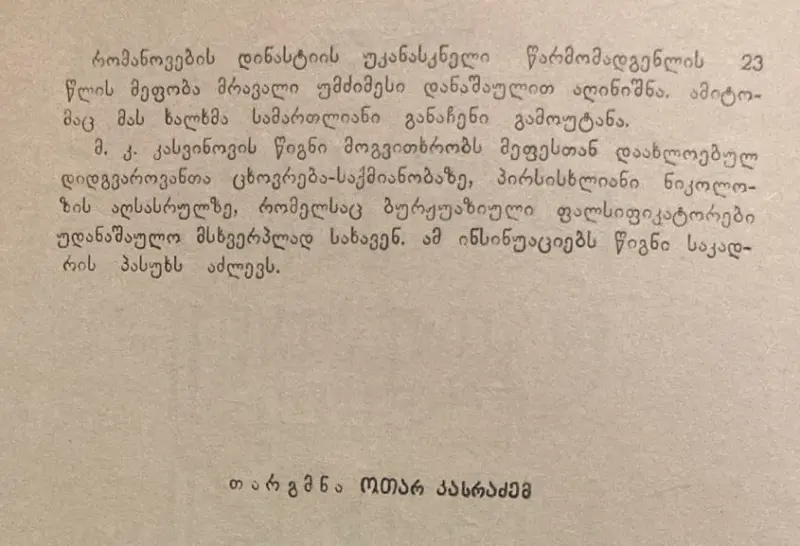 რომანოვების დინასტიის უკანასკნელი წარმომადგენლის 23
წლის მეფობა მრავალი უმძიმესი დანაშაულით აღინიშნა. ამიტო-
მაც მას ხალხმა სამართლიანი განაჩენი გამოუტანა.
მ. კ. კასვინოვის წიგნი მოგვითხრობს მეფესთან დაახლოებულ
დიდგვაროვანთა ცხოვრება-საქმიანობაზე, პირსისხლიანი ნიკოლო-
ზის აღსასრულზე, რომელსაც ბურჟუაზიული ფალსიფიკატორები
უდანაშაულო მსხვერპლად სახავენ. ამ ინსინუაციებს წიგნი საკად-
რის პასუხს აძლევს.
თარგმნა ოთარ კასრაძემ